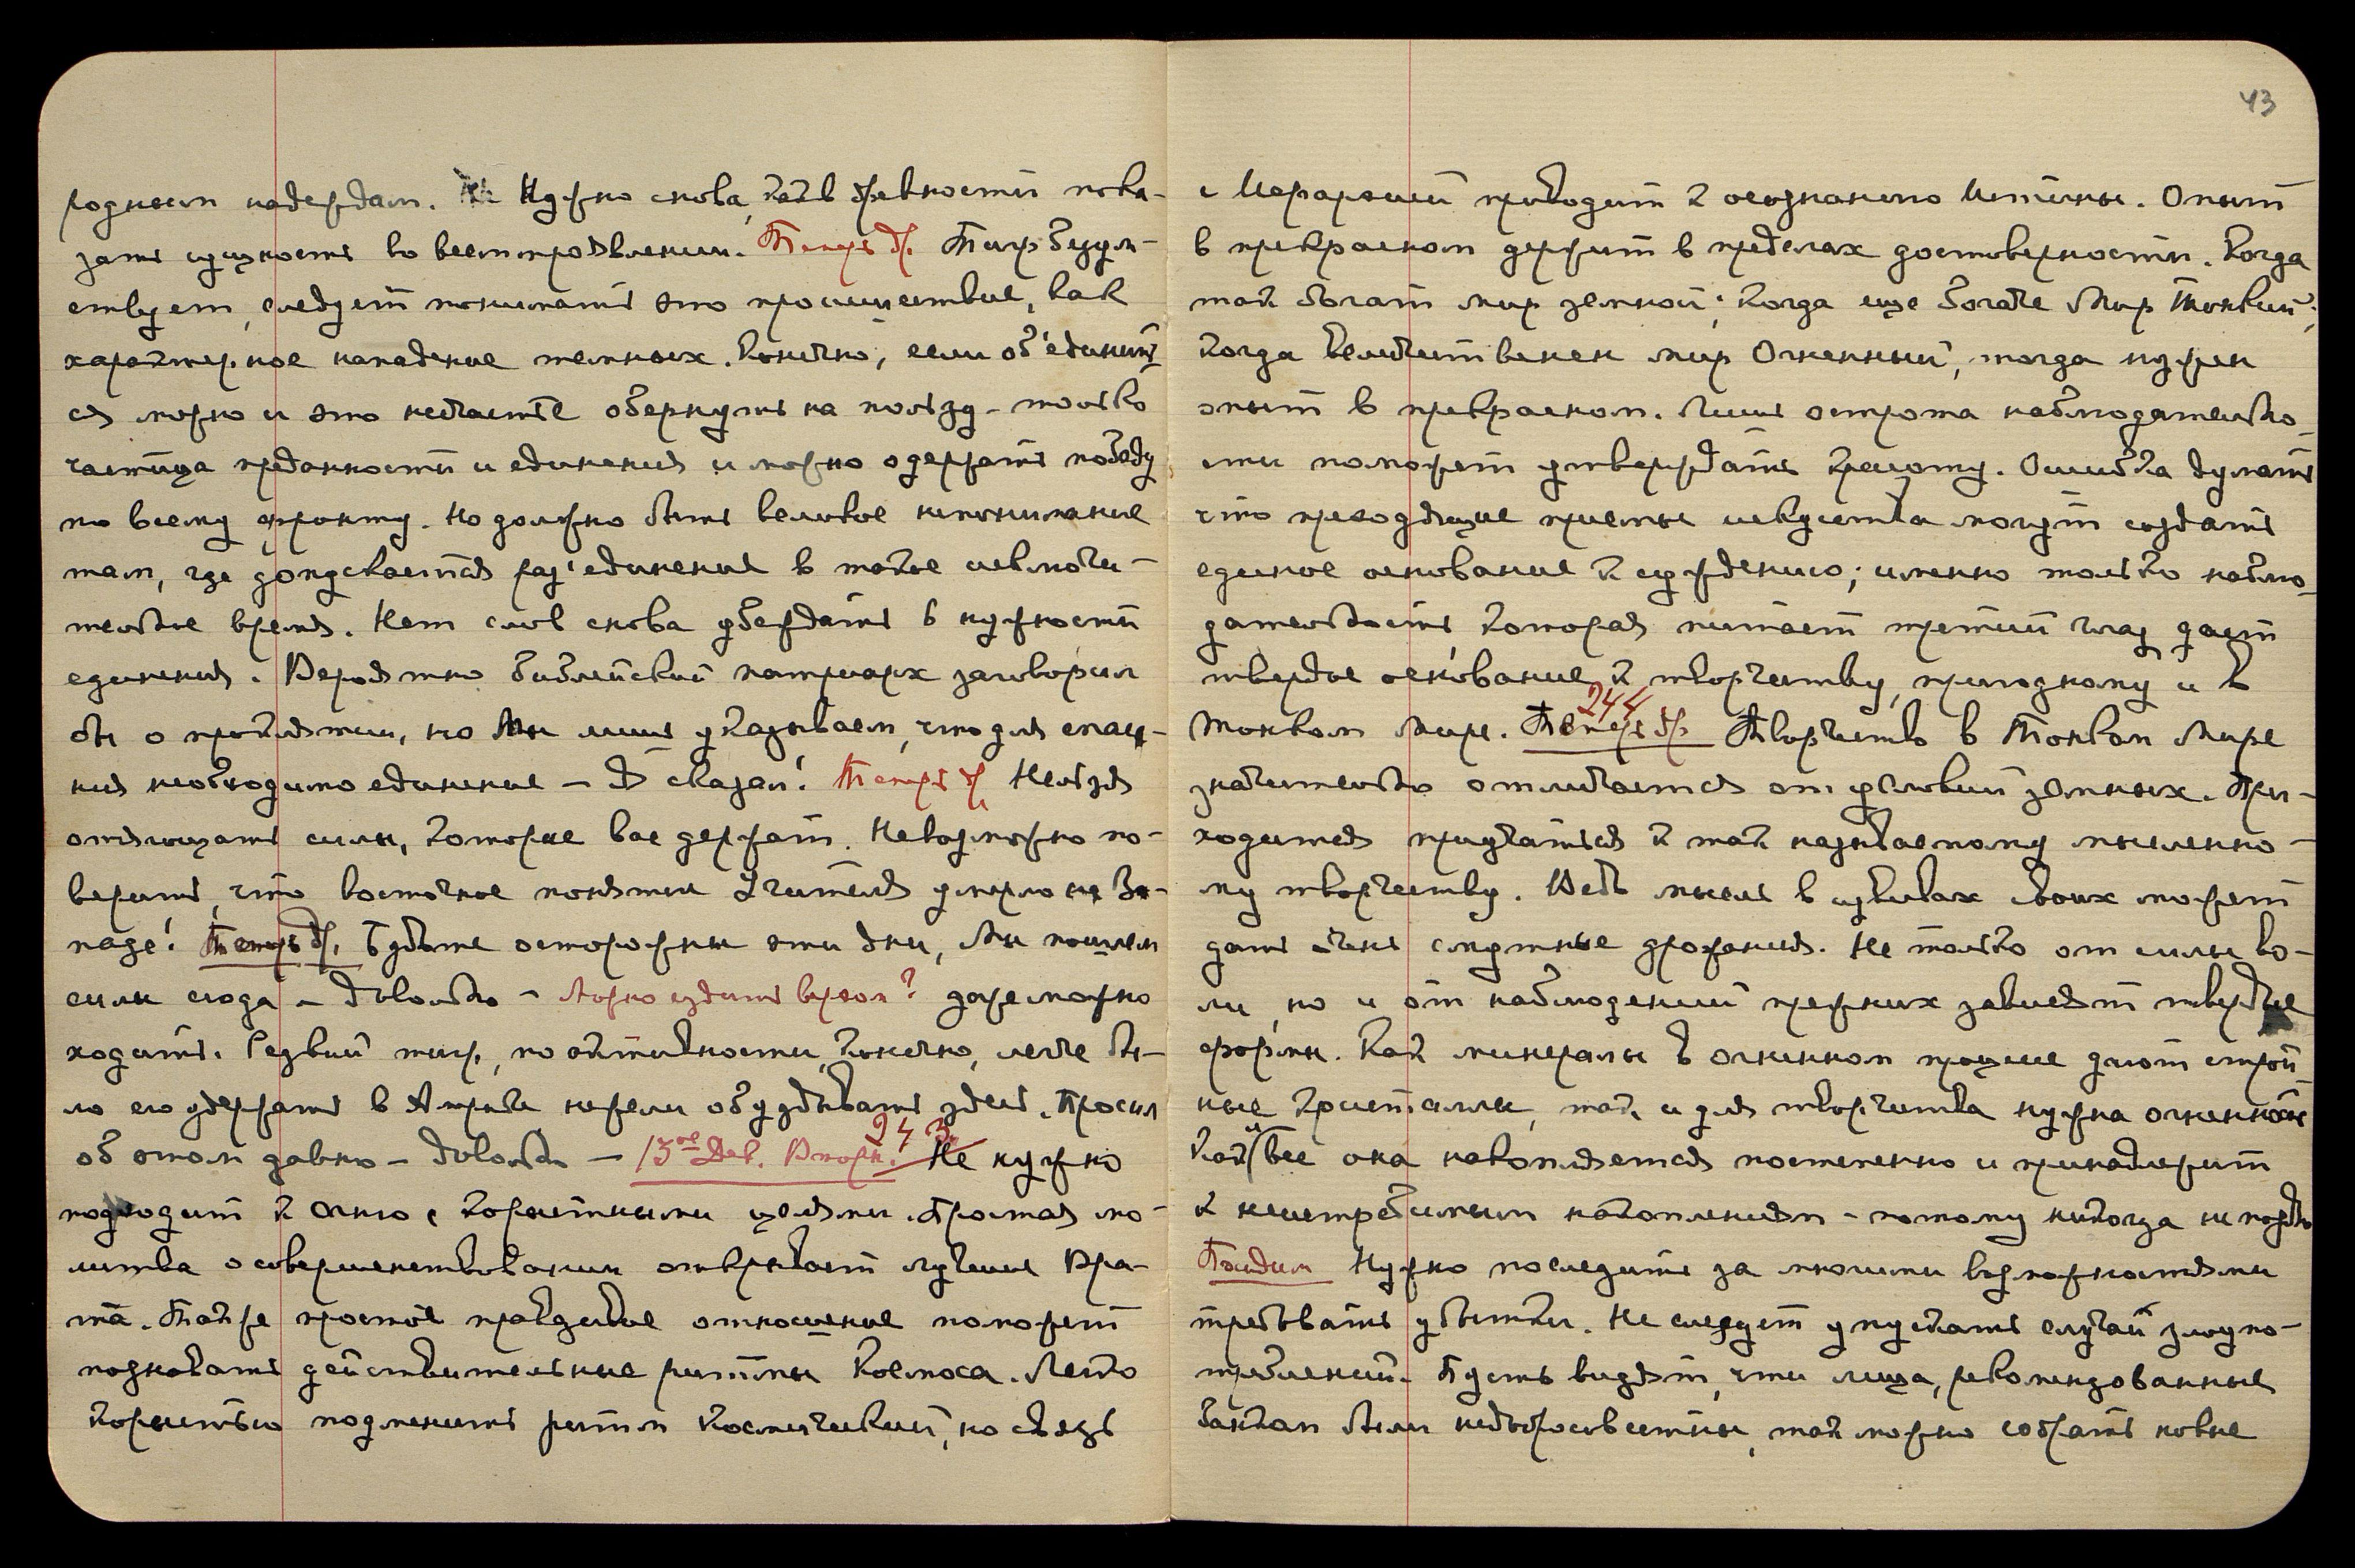 родным надеждам. Нужно снова, как в древности пока-
зать сущность во всем проявлении. Теперь др. Тигр безум-
ствует, следует понимать это происшествие, как
характерное нападение темных. Конечно, если об'единить
ся можно и это несчастье обернуть на пользу – только
частица преданности и единения и можно одержать победу
по всему фронту. Но должно быть великое непонимание
там, где допускается раз'единение в такое исключи-
тельное время. Нет слов снова убеждать в нужности
единения. Вероятно библейский патриарх заговорил
бы о проклятии, но Мы лишь указываем, что для спасе-
ния необходимо единение – Я сказал! Теперь др. Нельзя
отягощать силы, которые вас держат. Невозможно по-
верить, что восточное понятие Учителя умерло на За-
паде! Теперь др. Будьте осторожны эти дни, Мы пошлем
силы сюда – Довольно – Можно ездить верхом? даже можно
ходить. Резвый тигр, по активности, конечно, легче бы-
ло его удержать в Америке нежели обуздывать здесь. Просил
об этом давно – Довольно – 13ое Дек. Вторн. 243. Не нужно
подходить к Огню с корыстными целями. Простая мо-
литва о совершенствовании открывает лучшие Вра-
та. Также простое правдивое отношение поможет
познавать действительные ритмы Космоса. Легко
корыстью подменить ритм космический, но связь
43
с Иерархией приводит к осознанию Истины. Опыт
в прекрасном держит в пределах достоверности. Когда
так богат мир земной; когда еще богаче Мир Тонкий;
когда величественен мир Огненный, тогда нужен
опыт в прекрасном. Лишь острота наблюдательно-
сти поможет утверждать красоту. Ошибка думать
что преходящие приемы искусства могут создать
единое основание к суждению; именно только наблю-
дательность которая питает третий глаз дает
твердое основание к творчеству, пригодному и в
Тонком Мире. 244 Теперь др. Творчество в Тонком Мире
значительно отличается от условий земных. При-
ходится приучаться к так называемому мысленно-
му творчеству. Ведь мысль в извивах своих может
дать очень смутные дрожания. Не только от силы во-
ли, но и от наблюдений прежних зависят твердые
формы. Как минералы в огненном процессе дают строй-
ные кристаллы, так и для творчества нужна огненность
Как и все она накопляется постепенно и принадлежит
к неистребимым накоплениям – потому никогда не поздно
Поидин Нужно последить за многими возможностями
требовать убытки. Не следует упускать случай злоупо-
треблений. Пусть видят, что лица, рекомендованные
банком были недобросовестны, так можно собрать новые